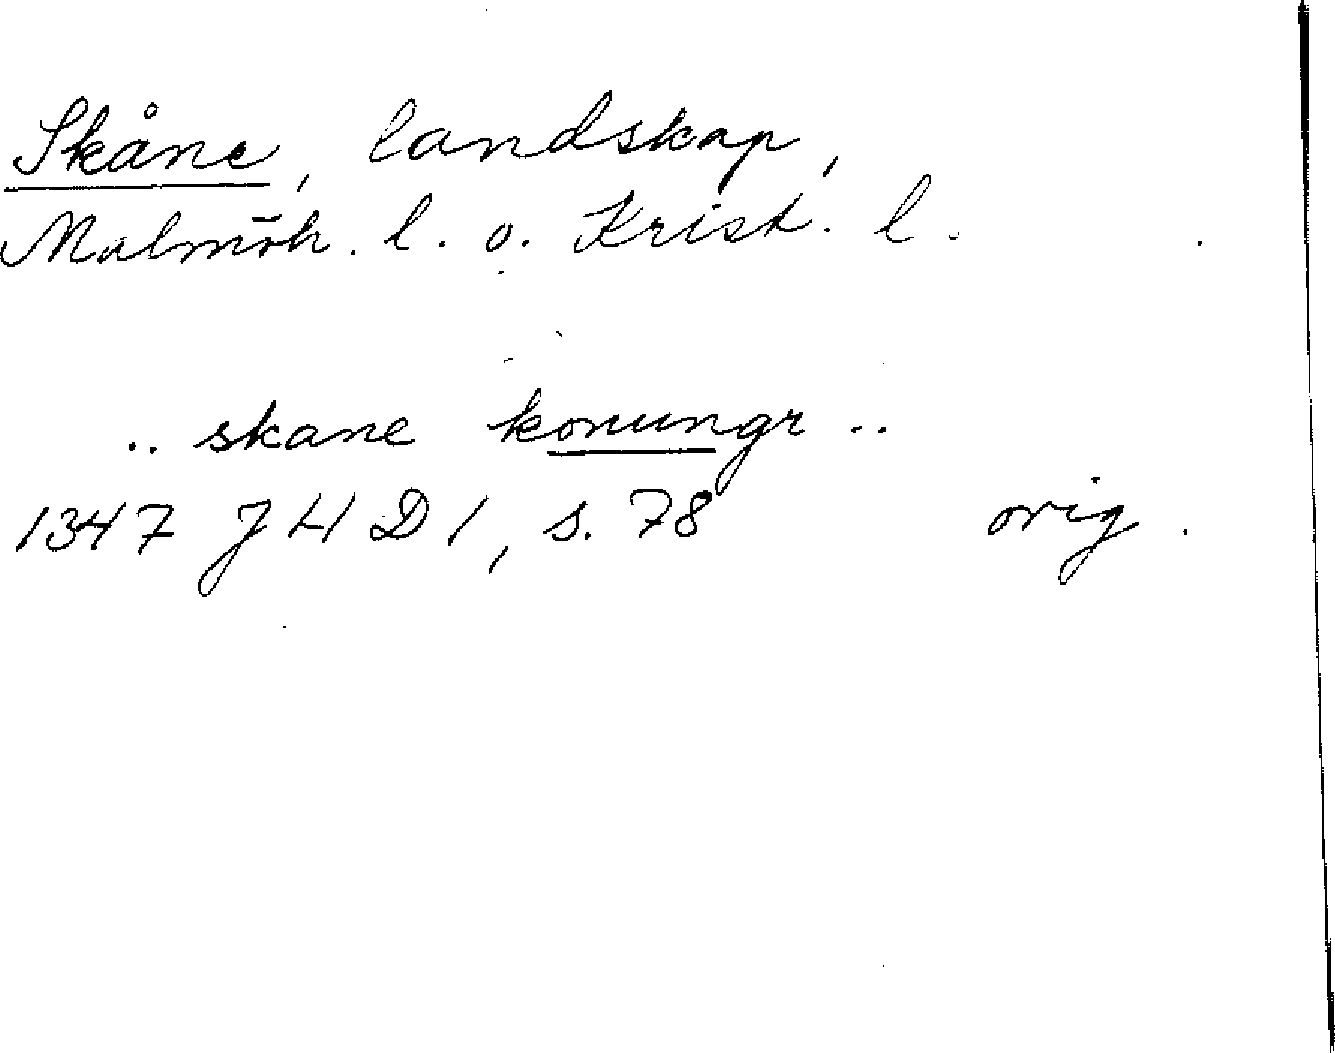 Skåne, landskap,
Malmöh. l. o. Krist. l.
.. skane konungr ..
1347 JHD 1, s. 78 orig.